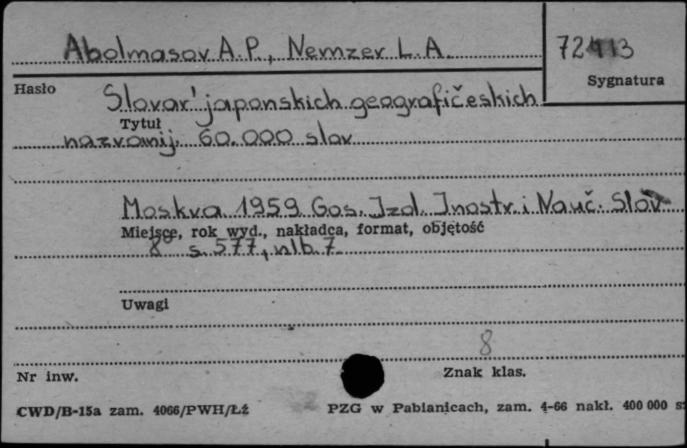 Abolmasov A.P., Nemzer L.A.
Sygnatura
Hasło
Slovar' japonskich geografičeskich
Tytuł
nazvanij. 60.000 slov
Moskva 1959 Gos. Izd. Inostr. i Nauč. Slov
Miejsce, rok wyd., nakładca, format, objętość
8° s. 577, nlb. 7
Uwagi
8
Nr inw.
Znak klas.
CWD/B-15a zam. 4066/PWH/Łź
PZG w Pabianicach, zam. 4-66 nakł. 400 000